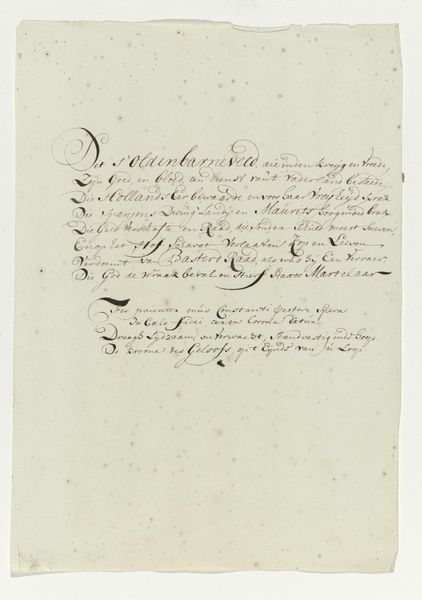 Dit s' Oldenbarneveld, die inden Kreyg en Vreede,
Zijn Goed en bloed, ten dienst van't Vaderland besteede,
Die Hollands Eer bewaarde en voor haar Vreyheyd sprak
Die Spanjens Dwinglandy en Maurits hoogmoed brak
Die Geld verschafte en Raad, die
En op het Schavot Verlaaten Zon en Leeven
Verdoemt van Basterd Raad, als was hij Een Verraer
Die God de wraak beval en Stierf Staats Martelaar
Fer patiens onus Constanti Pectore Spera
In Cælo fidei certa Corona
Draagt Lydzaam, en Verwacht, Standvastig inde hoop
De kroone des Geloofs, op't Eijnde van Loop